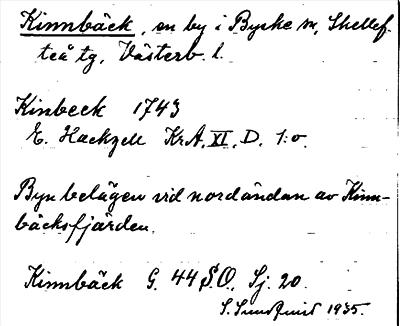 Kinnbäck, en by i Byske sn, Skellef-
teå tg, Västerb. l.
Kinbeck 1743
E. Hackzell KrA, XI, D. 1:o
Byn belägen vid nordändan av Kinn-
bäcksfjärden.
Kinnbäck G. 44 S.O. Sj. 20
S. Sundquist 1935.